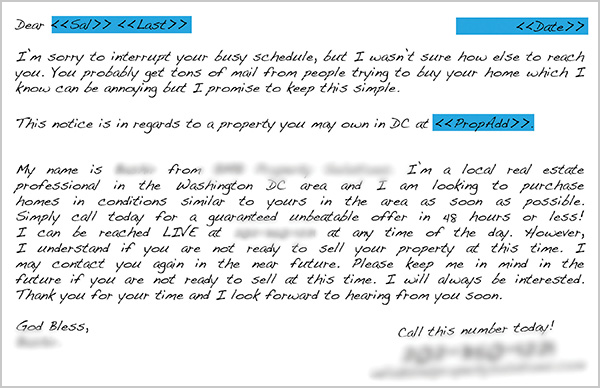 Dear <<Sal>> <<Last>> <<Date>>
I'm sorry to interrupt your busy schedule, but I wasn't sure how else to reach
you. You probably get tons of mail from people trying to buy your home which I
know can be annoying but I promise to keep this simple.
This notice is in regards to a property you may own in DC at <<PropAdd>>.
My name is from I'm a local real estate
professional in the Washington DC area and I am looking to purchase
homes in conditions similar to yours in the area as soon as possible.
Simply call today for a guaranteed unbeatable offer in 48 hours or less!
I can be reached LIVE at at any time of the day. However,
I understand if you are not ready to sell your property at this time. I
may contact you again in the near future. Please keep me in mind in the
future if you are not ready to sell at this time. I will always be interested.
Thank you for your time and I look forward to hearing from you soon.
God Bless,
Call this number today!